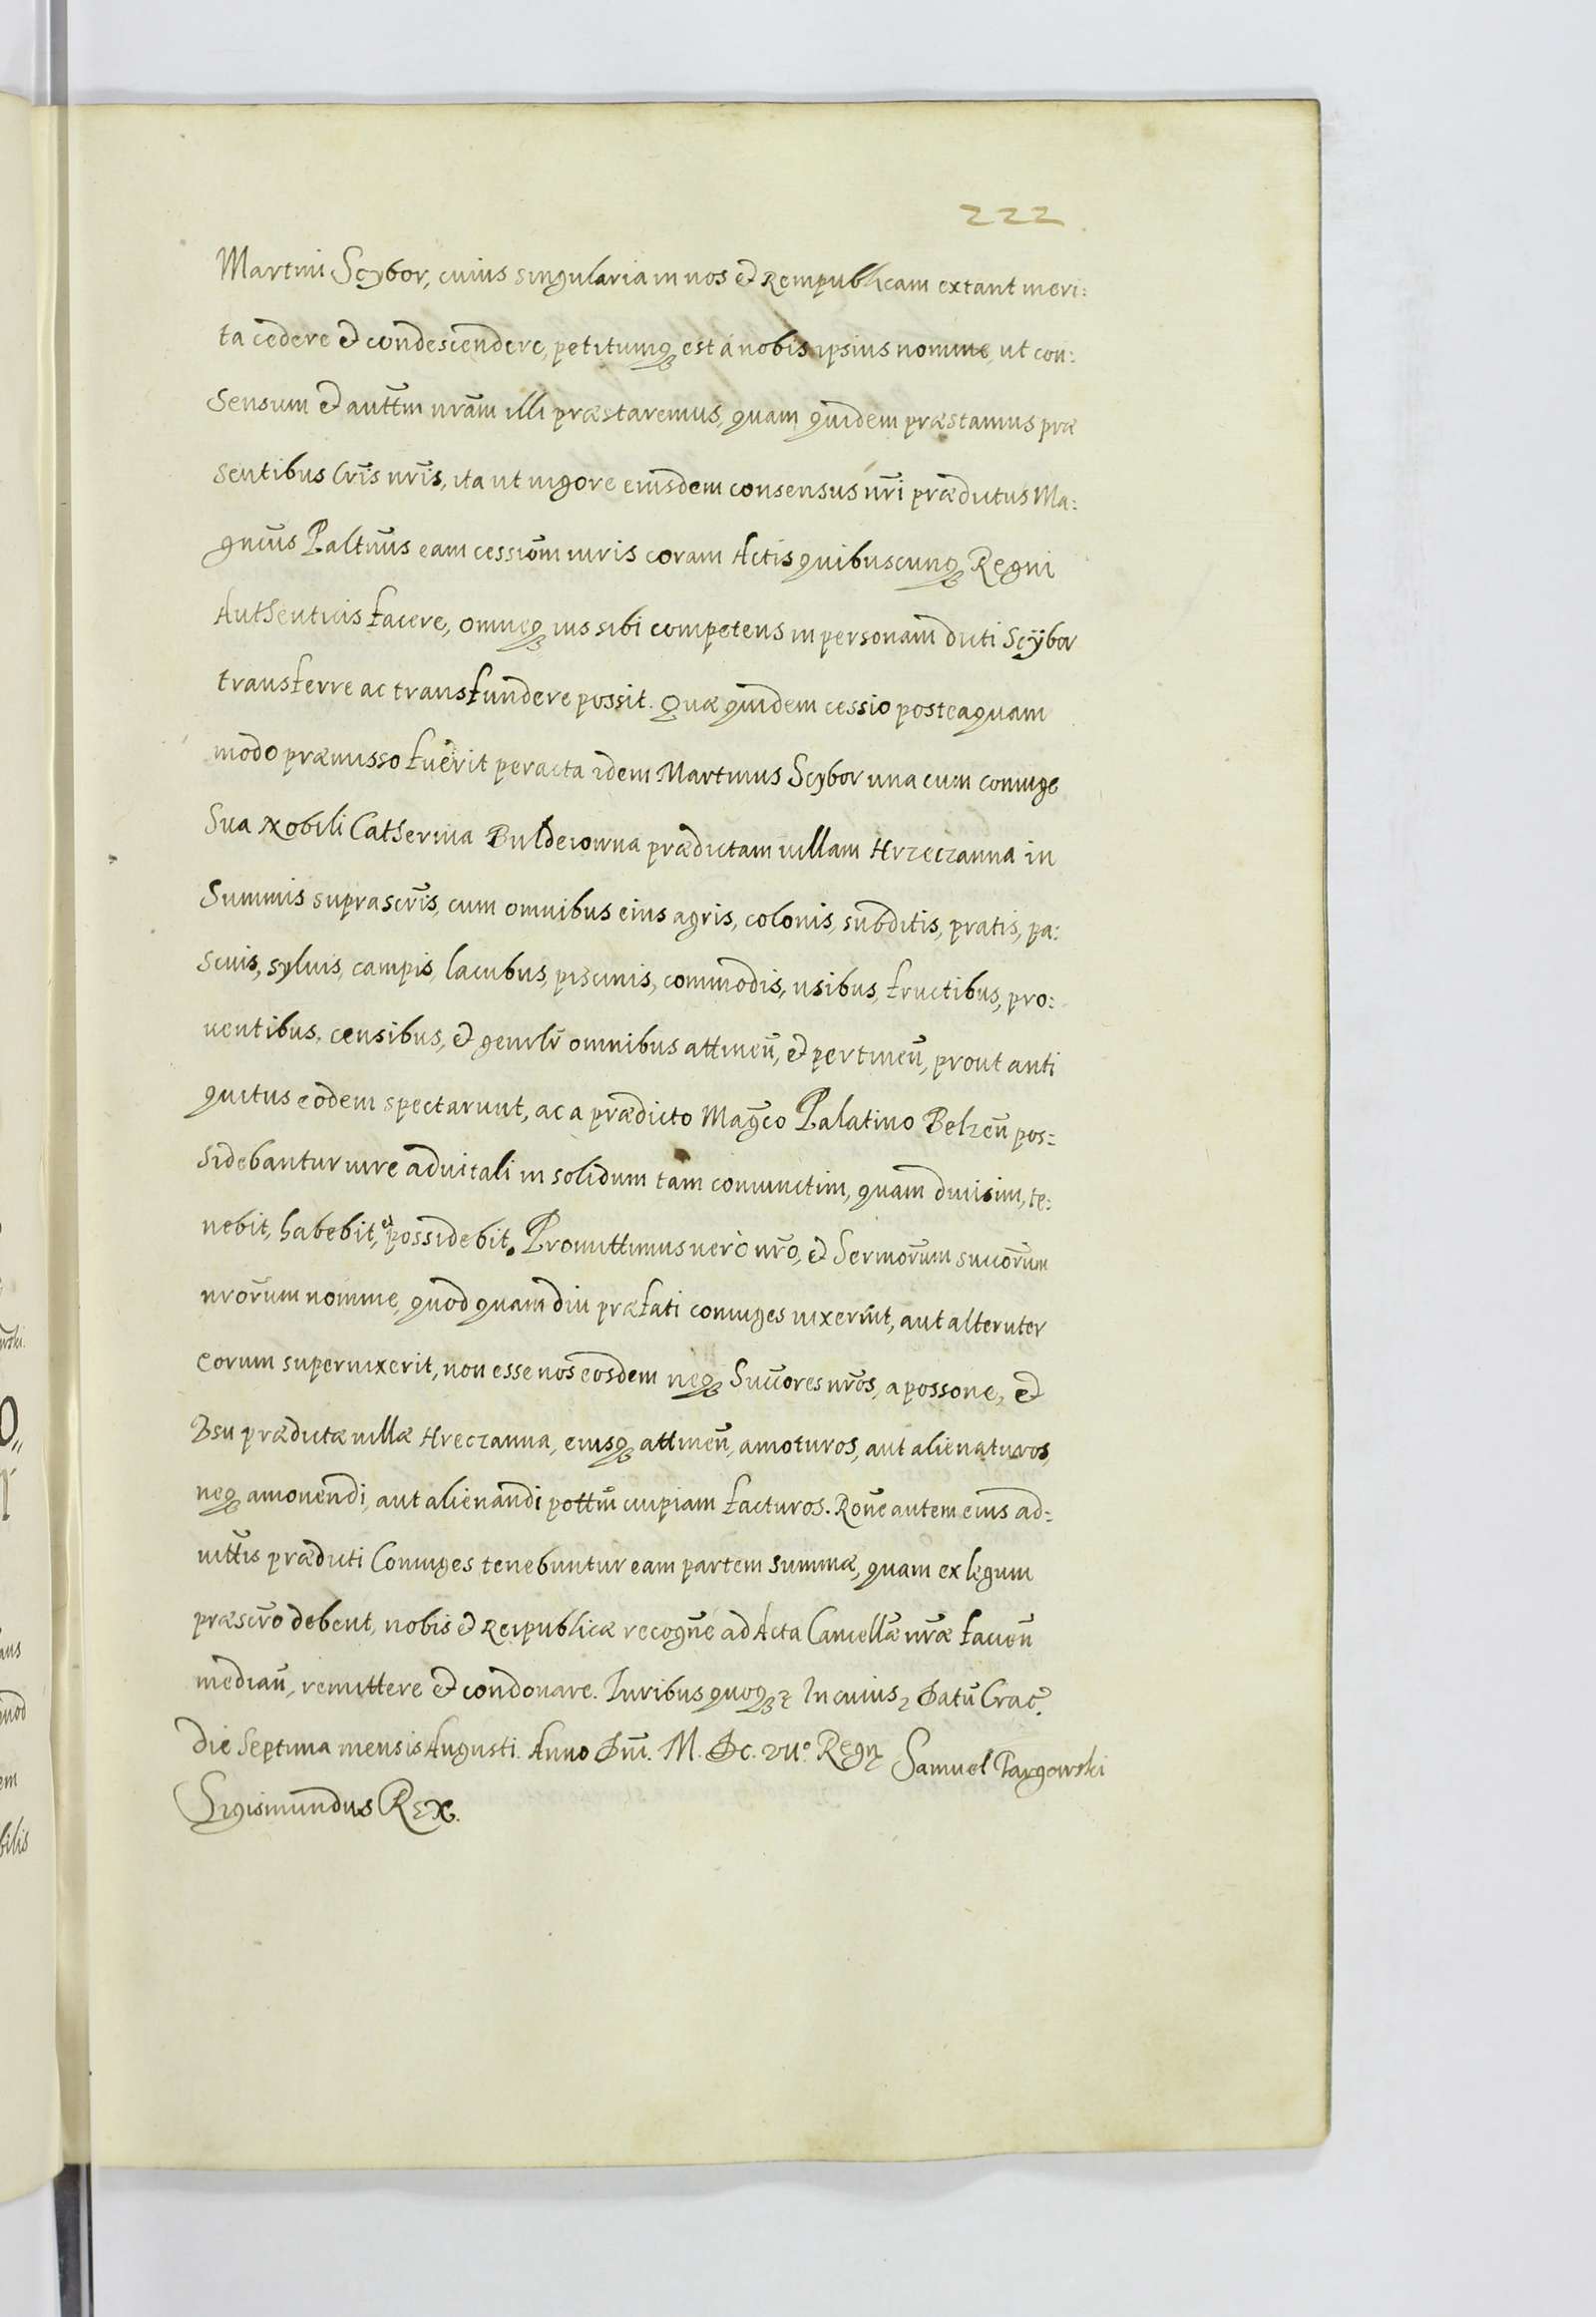 222
Martini Scybor, cuius singularia in nos et Rempublicam extant meri:
ta cedere et condescendere, petitumq́ est á nobis ipsius nomine, ut con:
sensum et auttm̃ nrãm illi præstaremus, quam quidem præstamus præ
sentibus Lrĩs nrĩs, ita ut vigore eiusdem consensus nr̃i prædictus Ma:
gnĩus Paltnũs eam cessiõm iuris coram Actis quibuscunq́ Regni
Authenticis facere, omneq́ ius sibi competens in personam dicti Scÿbor
transferre ac transfundere possit. Quæ quidem cessio posteaquam
modo præmisso fuerit peracta idem Martinus Scybor una cum coniuge
Sua Nobili Catherina Buldeiowna prædictam uillam Hrzeczanna in
Summis suprascrĩs, cum omnibus eius agris, colonis, subditis, pratis, pa:
scuis, syluis, campis, lacubus, piscinis, commodis, usibus, fructibus, pro:
uentibus, censibus, et gen̑lr̃ omnibus attineñ, et pertineñ, prout anti
quitus eodem spectarunt, ac a prædicto Mag̃co Palatino Belzeñ pos:
sidebantur iure aduitali in solidum tam coniunctim, quam diuisim, te:
nebit, habebit, et possidebit. Promittimus uerò nrõ, et Sermõrum succõrum
nrõrum nomine, quod quam diu præfati coniuges uixerint, aut alteruter
eorum superuixerit, non esse nos eosdem neq́ Succ̃ores nrõs, a possone, et
Vsu prædictæ uillæ Hreczanna, eiusq́ attineñ, amoturos, aut alienaturos,
neq́ amouendi, aut alienandi pottm̃ cuipiam facturos. Rone autem eius ad:
uittĩs prædicti Coniuges tenebuntur eam partem summæ, quam ex legum
præscrõ debent, nobis et Reipublicæ recogñe ad Acta Cancellæ nrǣ facieñ
mediañ, remittere et condonare. Iuribus quoq́ ꝛ In cuius ꝛ Datũ Crac̃.
die Septima mensis Augusti. Anno Dnĩ. M. Dc. VIIº. Regñ Samuel Targowski
Sigismundus Rex.